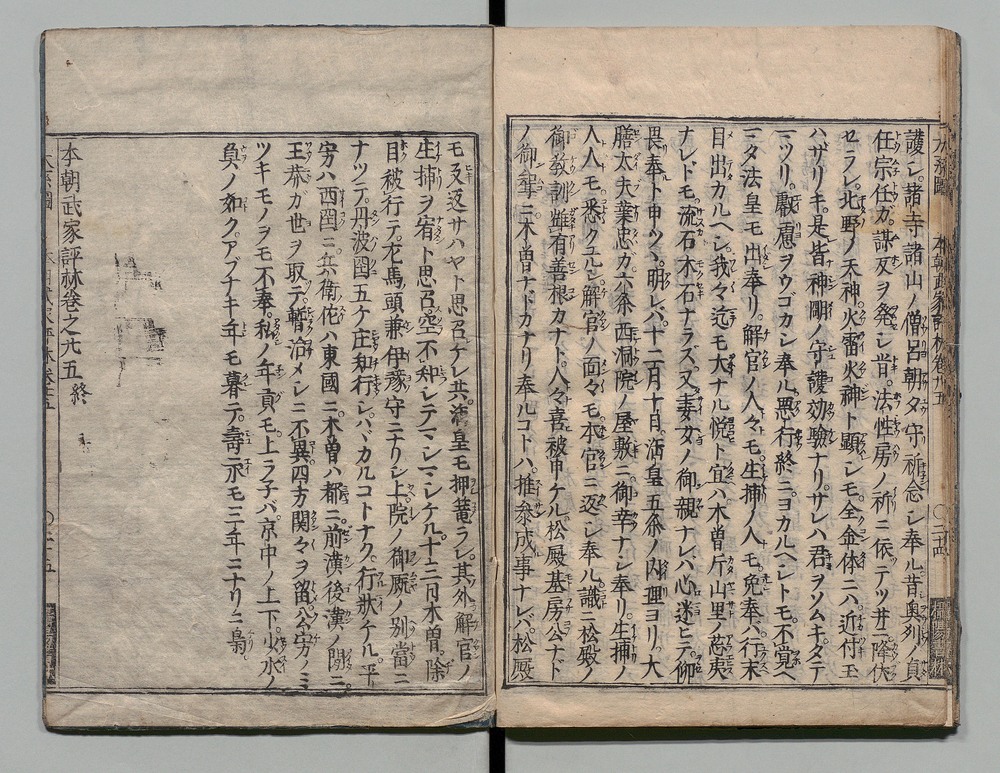 護シ諸寺諸山ノ僧呂朝夕守祈念シ奉ル昔奥列ノ貞
任宗任ガ謀反ヲ発シ昔法性房ノ祈ニ依テツ井ニ降伏
セラレ北野ノ天神火雷火神ト顕シモ全金体ニハ近付玉
ハザリキ是皆神剛ノ守護効驗ナリサレハ君ヲソムキタテ
ニツリ叡慮ヲウゴカシ奉ル悪行終ニヨカルヘシトモ不覚ヘ
ニタ法皇モ出奉リ解官ノ人々モ生捕ノ人モ免奉ヘ行末
目出カルヘシ我々迄モ大ナル悦ト宣ハ木曽片山里ノ
ナレドモ流石木石ナラズ又妻女ノ御親ナレハ心迷ヒテ仰
畏奉ト申ツヽ明レバ十二月十日法皇五条ノ内理ヨリ大
膳太夫業忠ガ六条西洞院ノ屋敷ニ御幸ナシ奉リ生捕ノ
人人モ悉クユルシ解官ノ面々モ本官ニ返シ奉ル識ニ松殿ノ
御教訓雖有善根カナト人々喜被申ケル松殿基房公ナド
ノ御聟ニ木曽ナドカナリ奉ルコトハ推参成事ナレバ松殿
モ又返サハヤト思召ケレ共法皇モ押篭ラレ其外解官ノ
生捕ヲ宥ト思召空不知シテマシマシケル十三日木曽除
目被行テ左馬頭兼伊豫守ニナリシ上院ノ御厩ノ別當ニ
ナツテ丹波國五ケ庄知行シバヽカルコトナク行歌チル平
家ハ西國ニ兵衛佐ハ東國ニ木曽ハ都ニ前漢後漢ノ間ニ
王莽カ世ヲ取テ暫治メシニ不異四方関々ヲ留公家ノミ
ツキモノヲモ不奉私ノ年貢モ上ラ子バ京中ノ上下少水ノ
魚ノ如クアブナキ年モ暮テ壽永モ三年ニナリニ鳧
本朝武家評林巻之廾五終